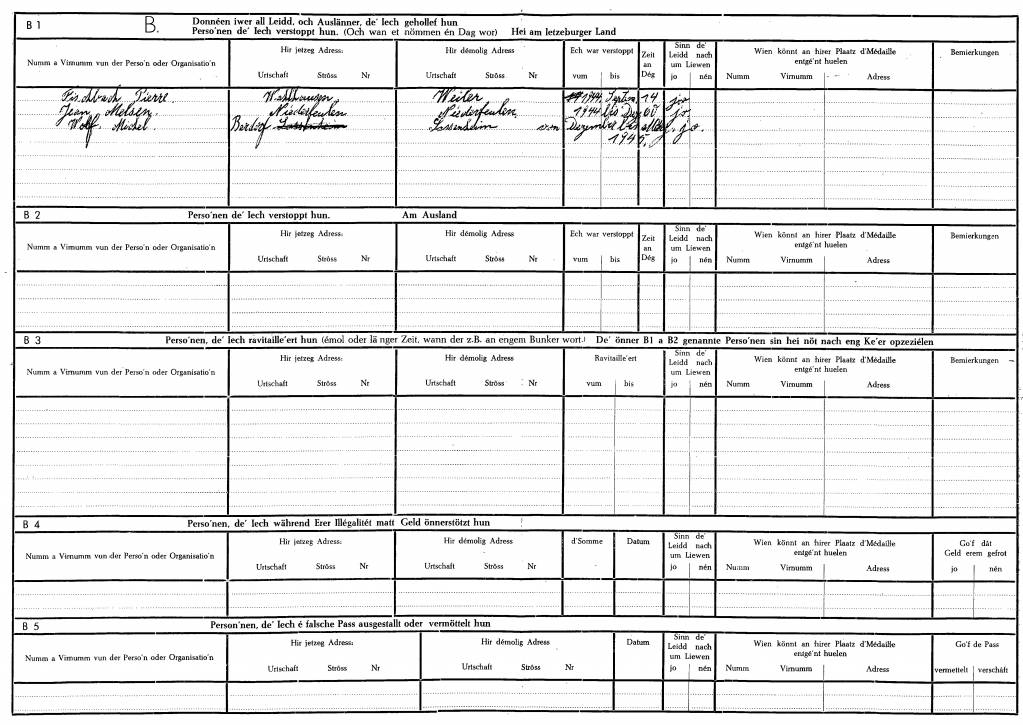 B 1 B. Donnéen iwer all Leidd, och Auslänner, de' Iech gehollef hun
Perso'nen de' Iech verstoppt hun. (Och wan et nömmen én Dag wor) Hei am letzeburger Land
Numm a Virnumm vun der Perso'n oder Organisatio'n Hir jetzeg Adress: Urtschaft Ströss Nr Hir démolig Adress Urtschaft Ströss Nr Ech war verstoppt vum bis Zeit an Dég Sinn de' Leidd nach um Liewen jo nén Wien könnt an hirer Plaatz d'Médaille entgé'nt huelen Numm Virnumm Adress Bemierkungen
Fischbach Pierre. Wahlhausen Weiler 1944 14 jo
Jean Melsen. Niederfeulen Niederfeulen 1944 bis jo.
Wolf. Michel. Berdorf Lassenheim von Dezember bis jo.
1945.
B 2 Perso'nen de' Iech verstoppt hun. Am Ausland
Numm a Virnumm vun der Perso'n oder Organisatio'n Hir jetzeg Adress: Urtschaft Ströss Nr Hir démolig Adress Urtschaft Ströss Nr Ech war verstoppt vum bis Zeit an Dég Sinn de' Leidd nach um Liewen jo nén Wien könnt an hirer Plaatz d'Médaille entgé'nt huelen Numm Virnumm Adress Bemierkungen
B 3 Perso'nen, de' Iech ravitaille'ert hun (émol oder länger Zeit, wann der z.B. an engem Bunker wort.) De' önner B1 a B2 genannte Perso'nen sin hei nöt nach eng Ke'er opzeziélen
Numm a Virnumm vun der Perso'n oder Organisatio'n Hir jetzeg Adress: Urtschaft Ströss Nr Hir démolig Adress Urtschaft Ströss Nr Ravitaille'ert vum bis Sinn de' Leidd nach um Liewen jo nén Wien könnt an hirer Plaatz d'Médaille entgé'nt huelen Numm Virnumm Adress Bemierkungen
B 4 Perso'nen, de' Iech während Erer Illégalitét matt Geld önnerstötzt hun
Numm a Virnumm vun der Perso'n oder Organisatio'n Hir jetzeg Adress: Urtschaft Ströss Nr Hir démolig Adress Urtschaft Ströss Nr d'Somme Datum Sinn de' Leidd nach um Liewen jo nén Wien könnt an hirer Plaatz d'Médaille entgé'nt huelen Numm Virnumm Adress Go'f dât Geld erem gefrot jo nén
B 5 Person'nen, de' Iech é falsche Pass ausgestallt oder vermöttelt hun
Numm a Virnumm vun der Perso'n oder Organisatio'n Hir jetzeg Adress: Urtschaft Ströss Nr Hir démolig Adress Urtschaft Ströss Nr Datum Sinn de' Leidd nach um Liewen jo nén Wien könnt an hirer Plaatz d'Médaille entgé'nt huelen Numm Virnumm Adress Go'f de Pass vermettelt verschäft